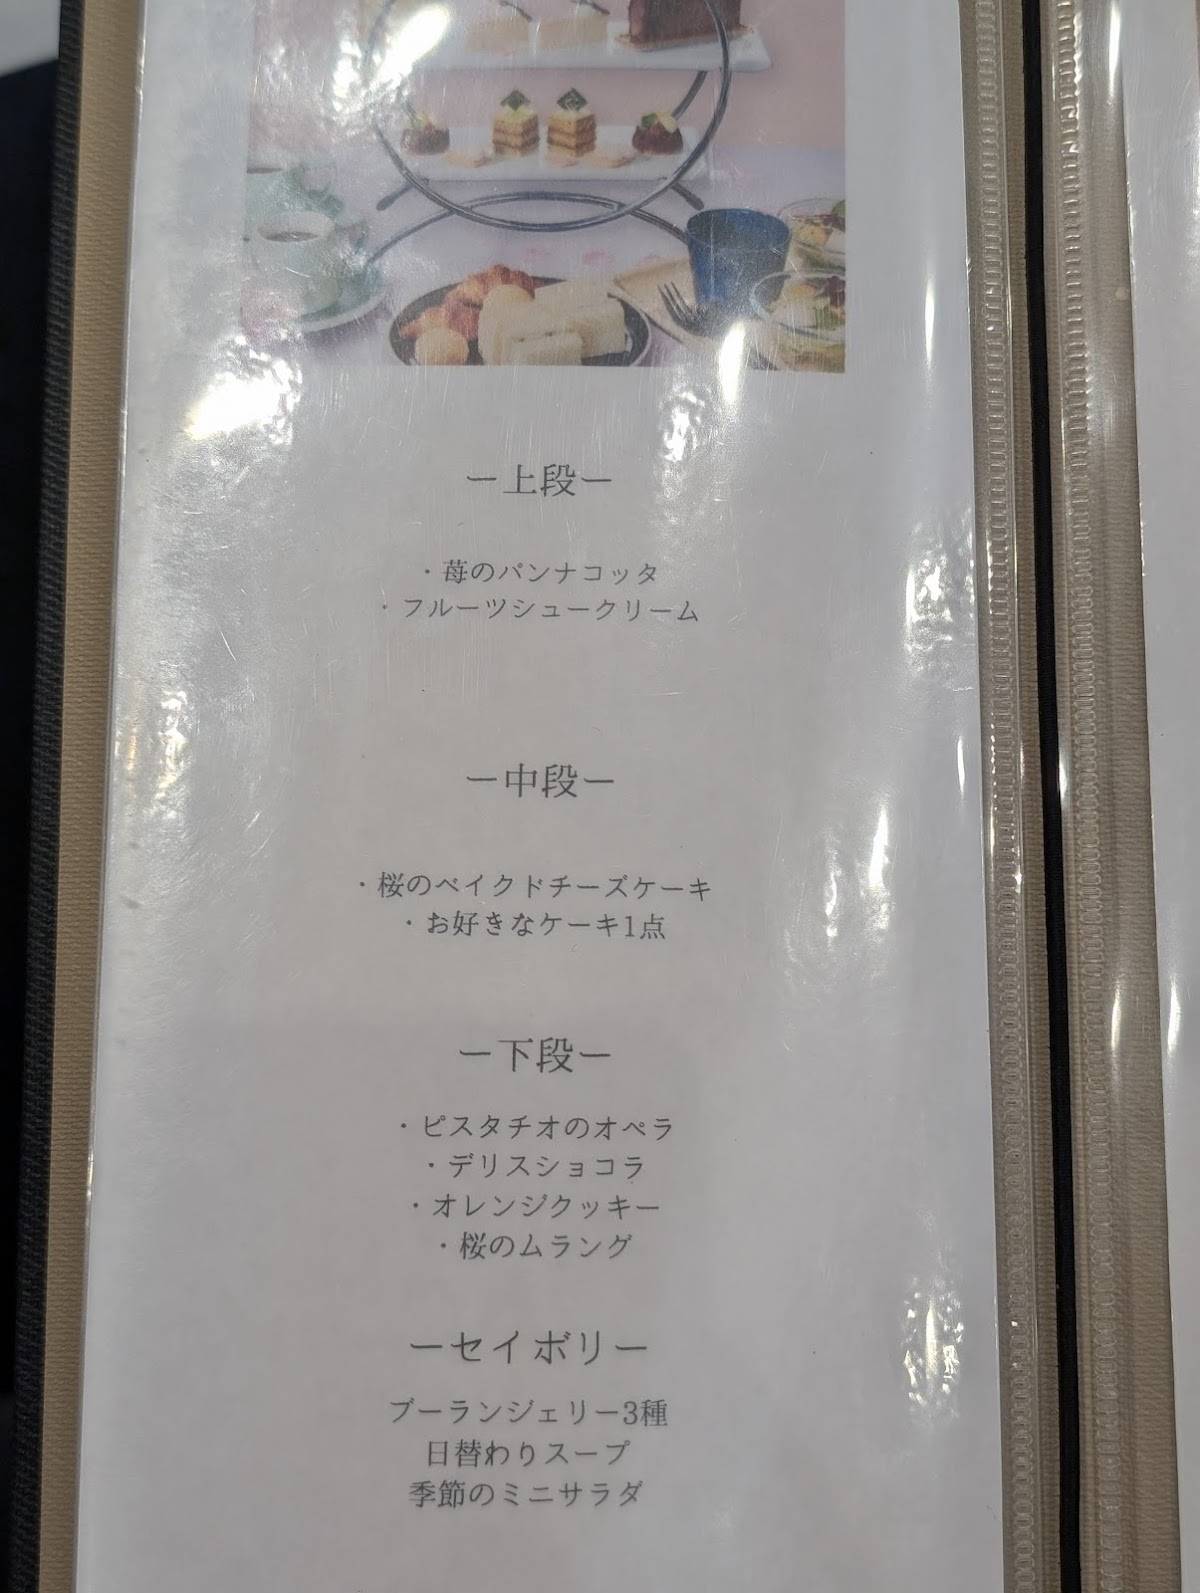 ー上段ー
・苺のパンナコッタ
・フルーツシュークリーム
ー中段ー
・桜のベイクドチーズケーキ
・お好きなケーキ1点
ー下段ー
・ピスタチオのオペラ
・デリスショコラ
・オレンジクッキー
・桜のムラング
ーセイボリー
ブーランジェリー3種
日替わりスープ
季節のミニサラダ